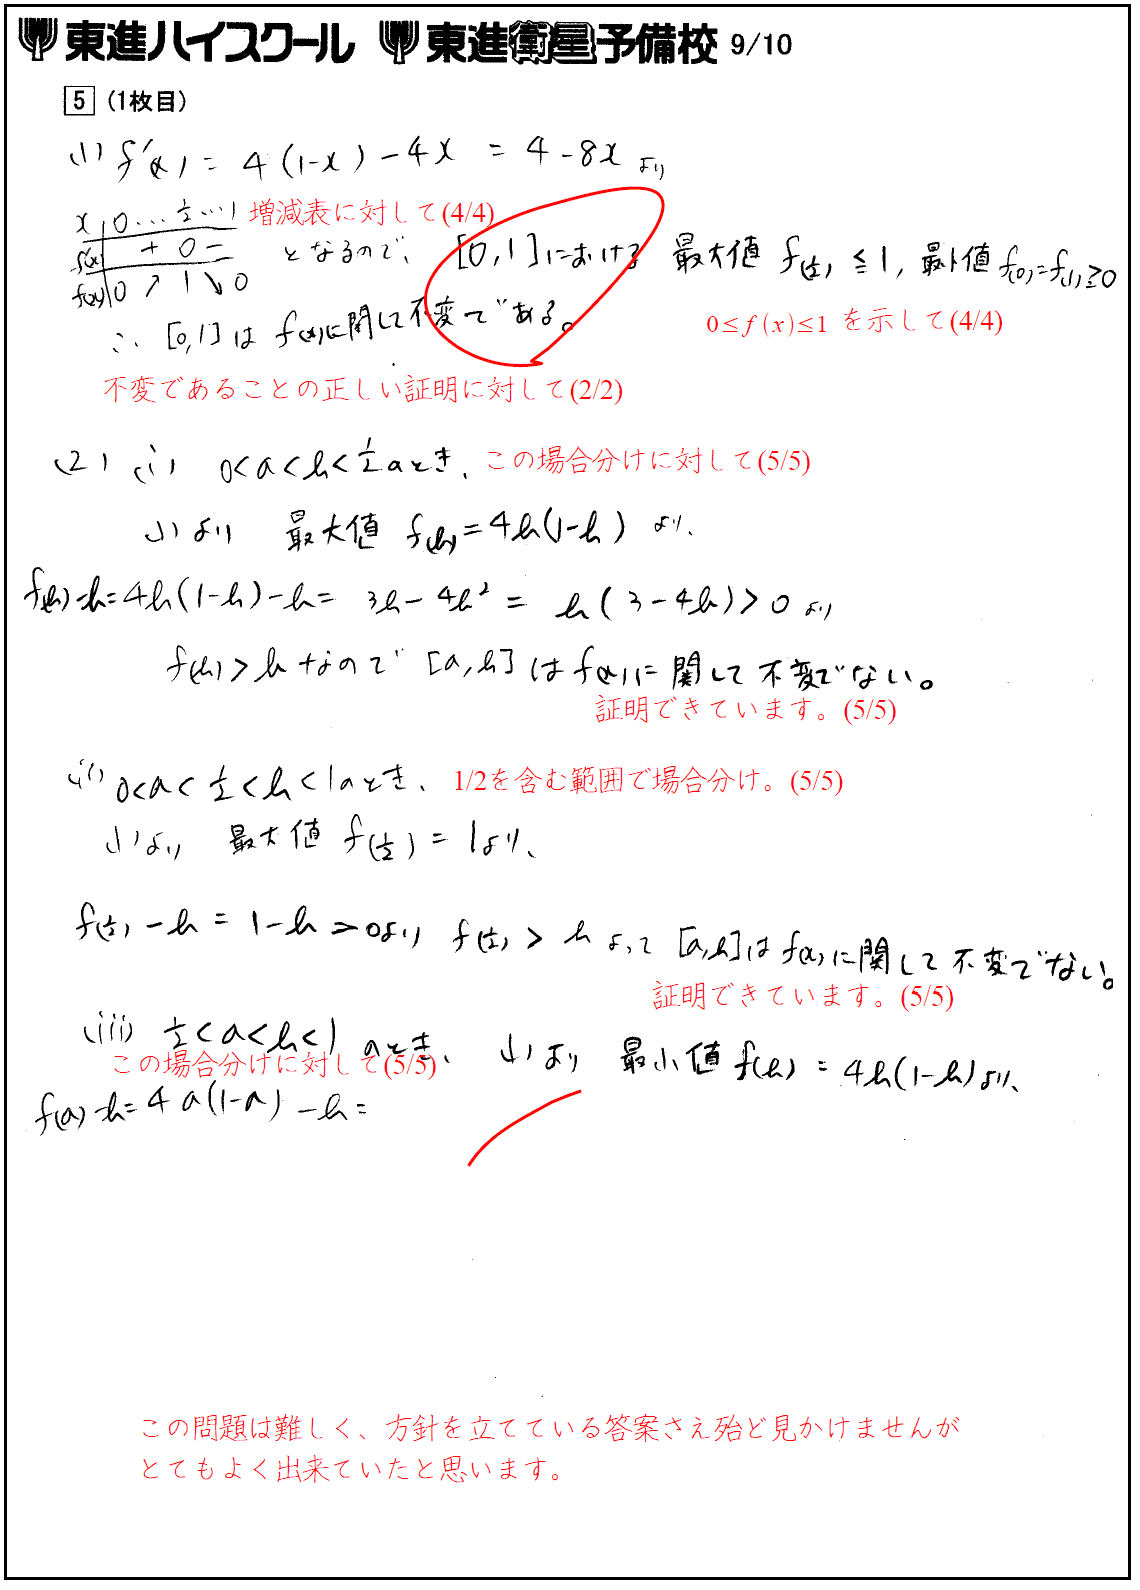 東進ハイスクール 東進衛星予備校 9/10
5 (1枚目)
(1) f'(x) = 4(1-x) - 4x = 4 - 8x より
x 0 … 1/2 … 1 増減表に対して(4/4)
f'(x) + 0 - となるので、[0,1]における 最大値 f(1/2) ≦ 1, 最小値 f(0)=f(1)≧0
f(x) 0 ↗ 1 ↘ 0
∴ [0,1] は f(x)に関して不変である。 0≤f(x)≤1 を示して(4/4)
不変であることの正しい証明に対して(2/2)
(2) (i) 0<a<b<1/2 のとき、 この場合分けに対して(5/5)
(1)より 最大値 f(b)=4b(1-b) より、
f(b)-b=4b(1-b)-b= 3b-4b² = b(3-4b)>0 より
f(b)>b なので [a,b] は f(x)に関して不変でない。
証明できています。(5/5)
(ii) 0<a<1/2<b<1のとき、 1/2を含む範囲で場合分け。(5/5)
(1)より 最大値 f(1/2) = 1より、
f(1/2) - b = 1-b >0より f(1/2) > b よって [a,b]は f(x)に関して不変でない。
証明できています。(5/5)
(iii) 1/2<a<b<1 のとき、 (1)より 最小値 f(b) = 4b(1-b)より、
この場合分けに対して(5/5)
f(a)-b=4a(1-a)-b=
この問題は難しく、方針を立てている答案さえ殆ど見かけませんが
とてもよく出来ていたと思います。